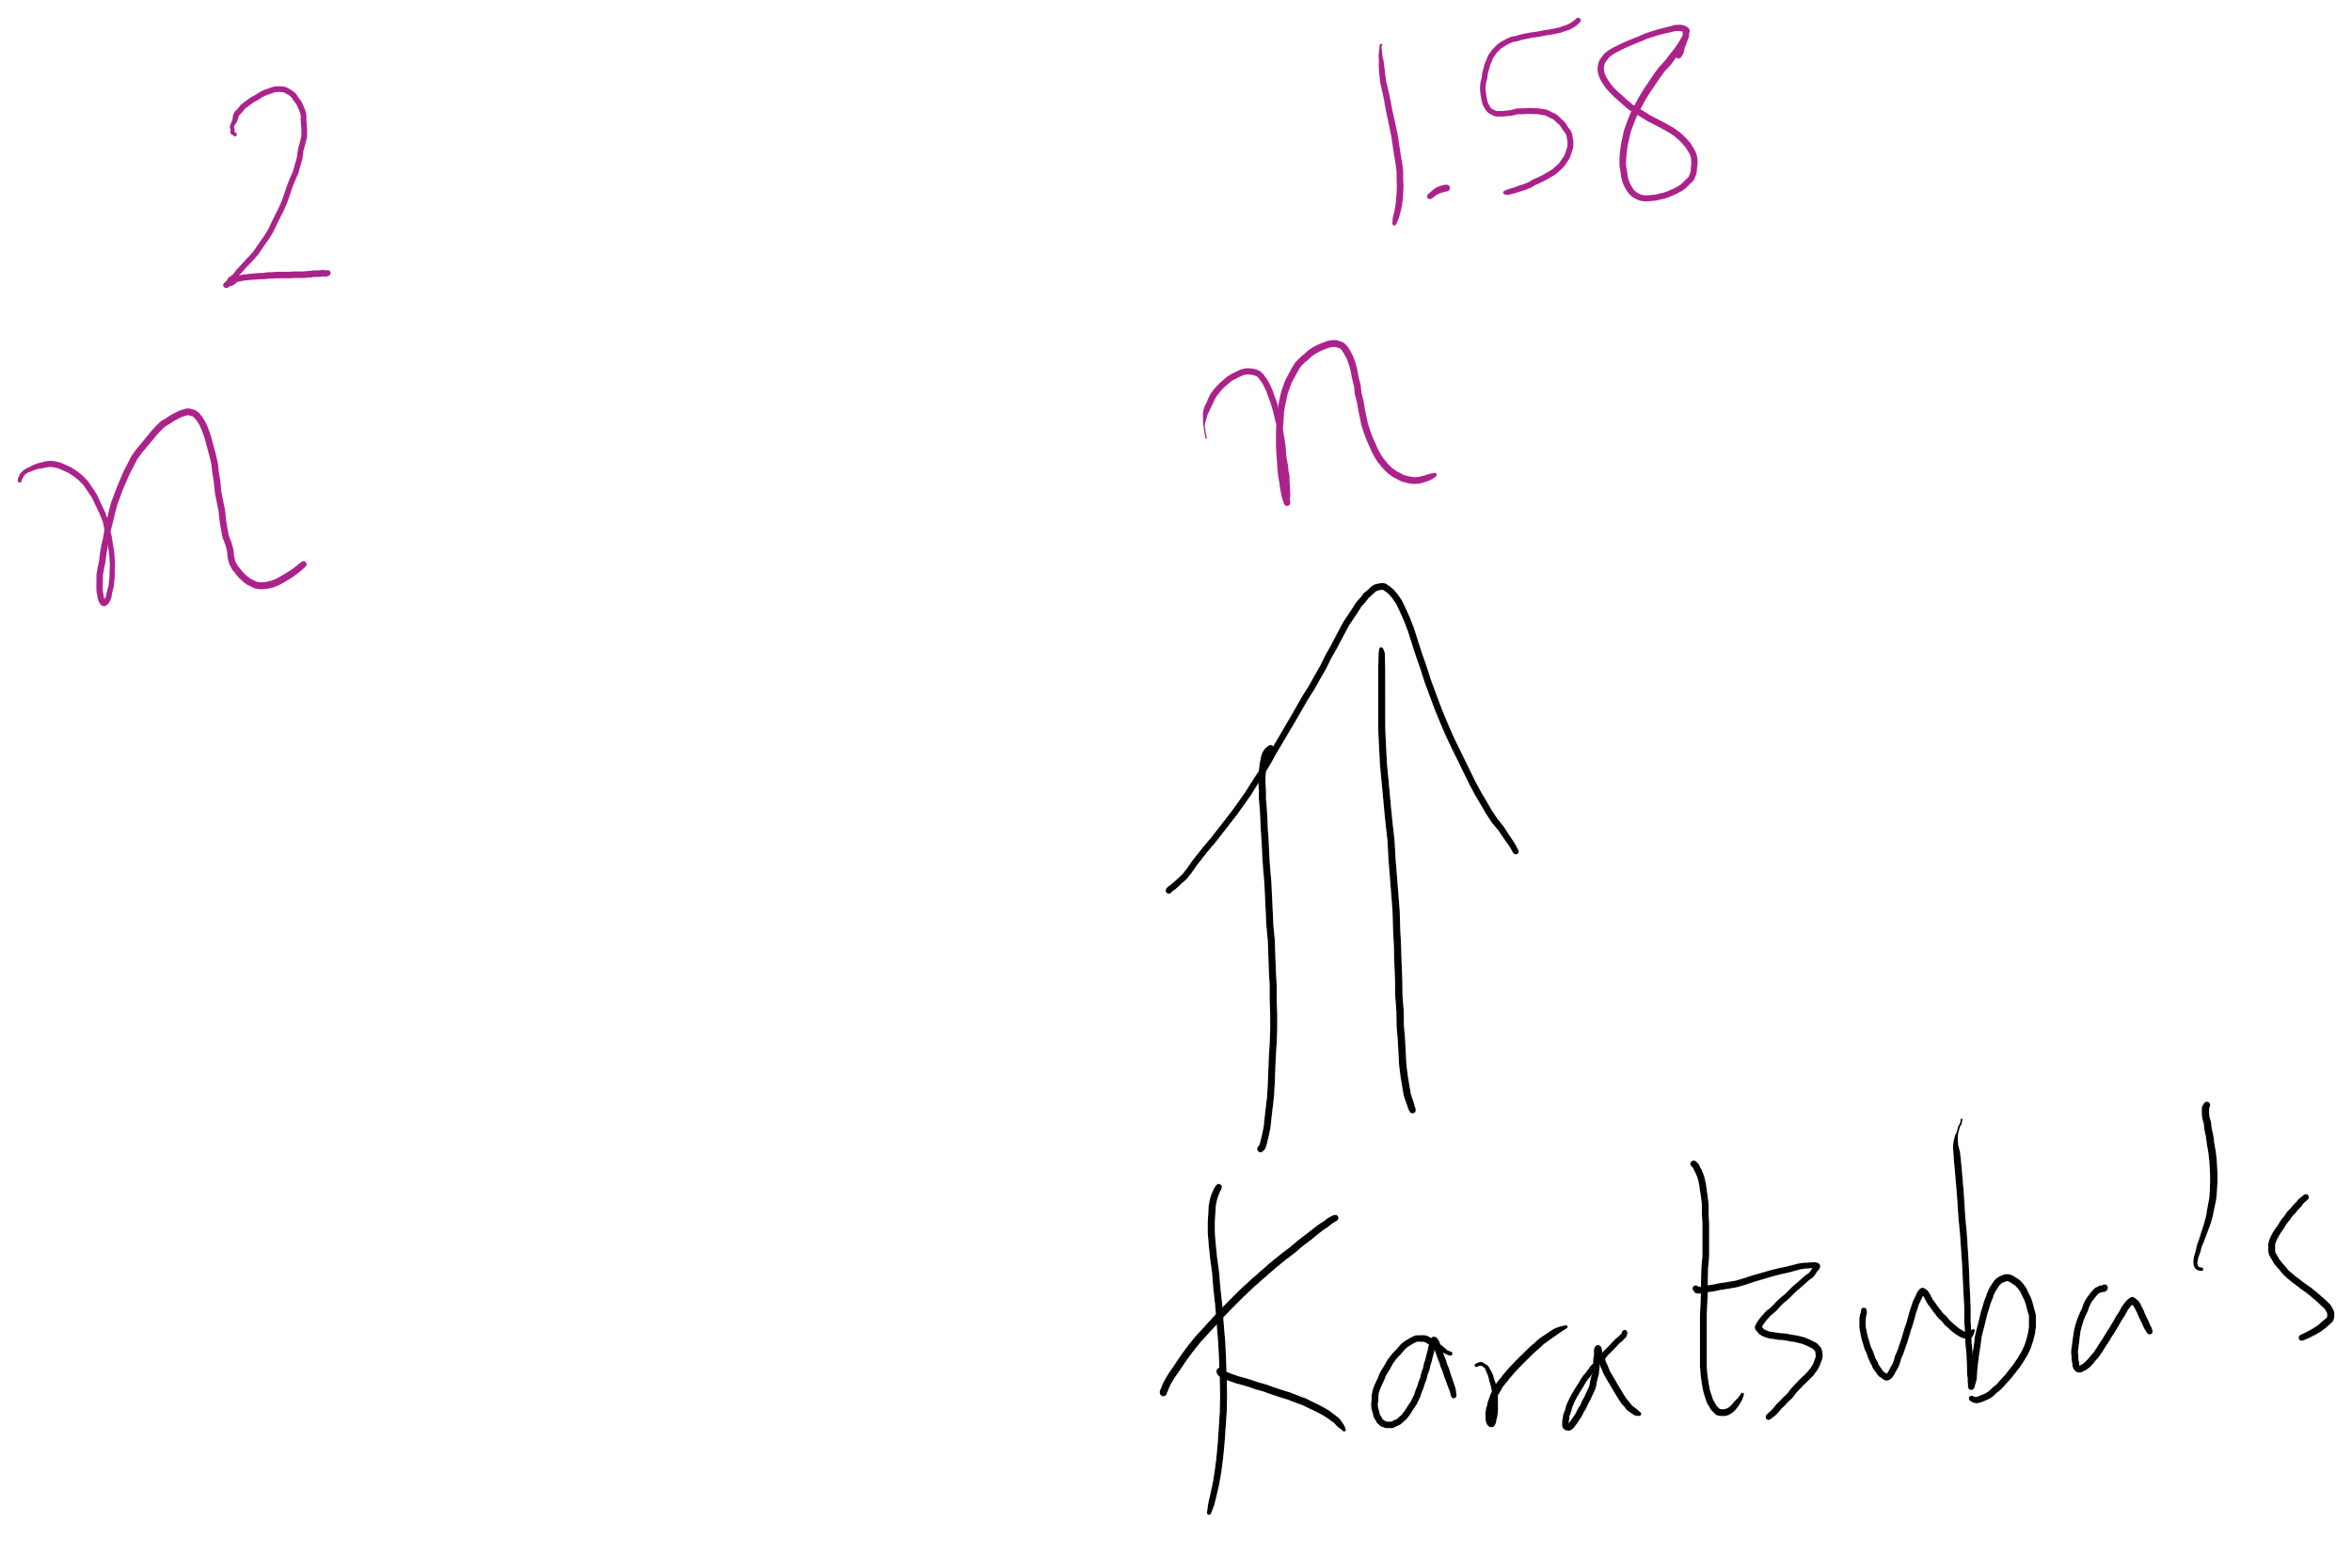 n² n^1.58
Karatsuba's